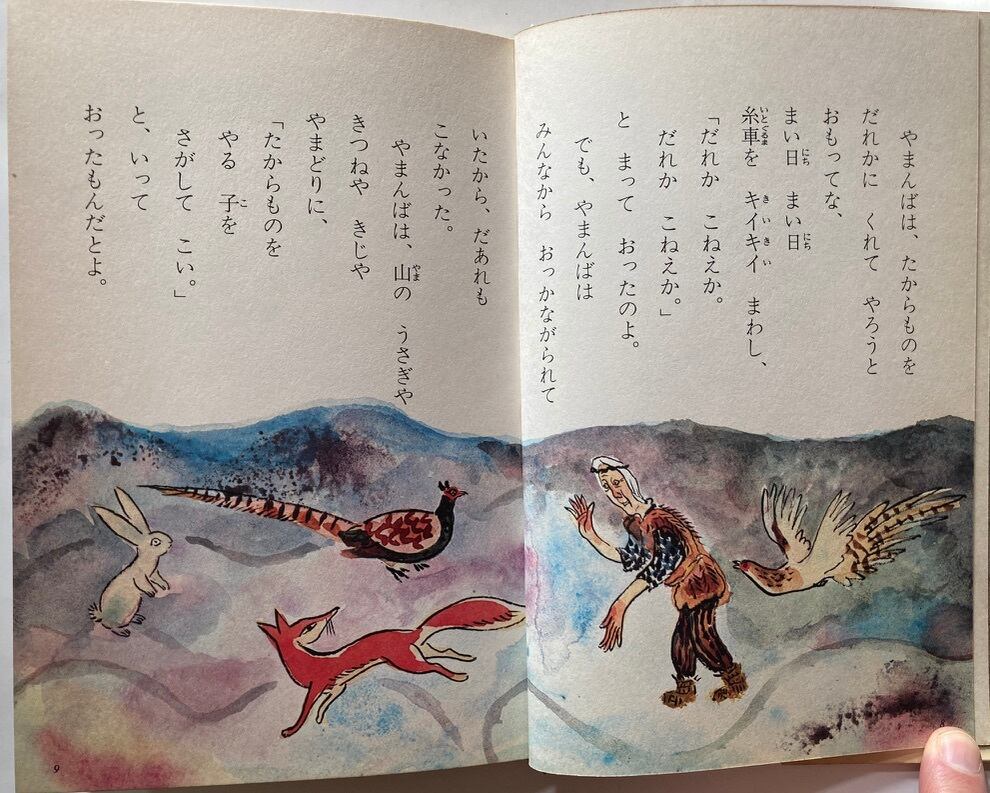 やまんばは、たからものを
だれかに　くれて　やろうと
おもってな、
まい日　まい日
糸車を　キイキイ　まわし、
「だれか　こねえか。
だれか　こねえか。」
と　まって　おったのよ。
でも、やまんばは
みんなから　おっかながられて
いたから、だあれも
こなかった。
やまんばは、山の　うさぎや
きつねや　きじや
やまどりに、
「たからものを
やる　子を
さがして　こい。」
と、いって
おったもんだとよ。
9